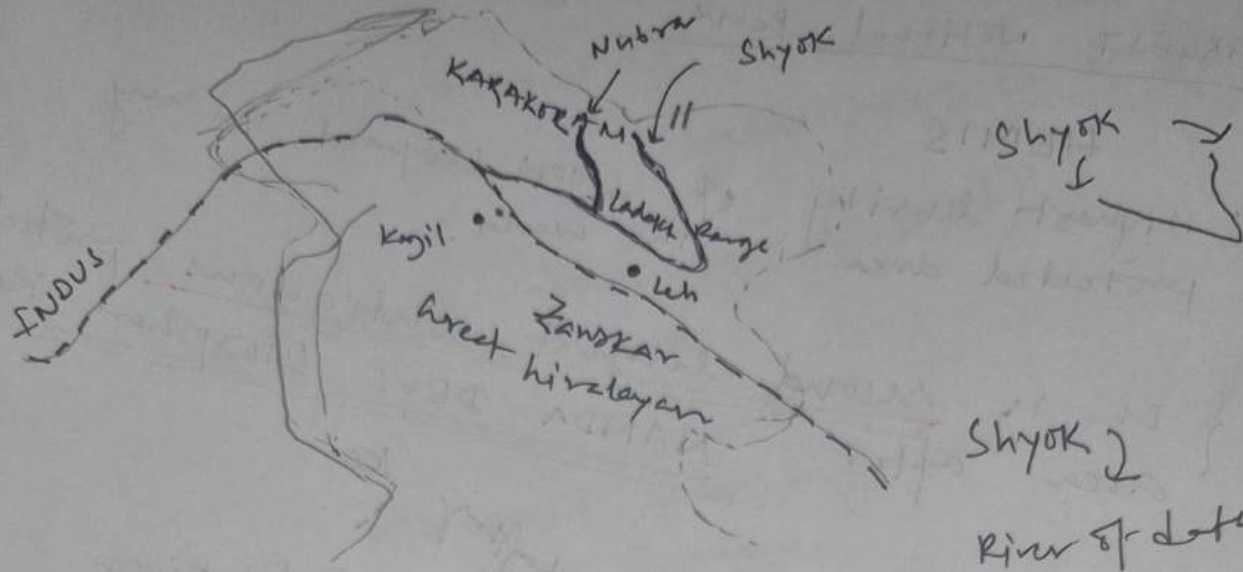 Nubra
Shyok
KARAKORAM
Shyok
Ladakh Range
Kargil
Leh
INDUS
Zanskar
Great himalayan
Shyok
River of death